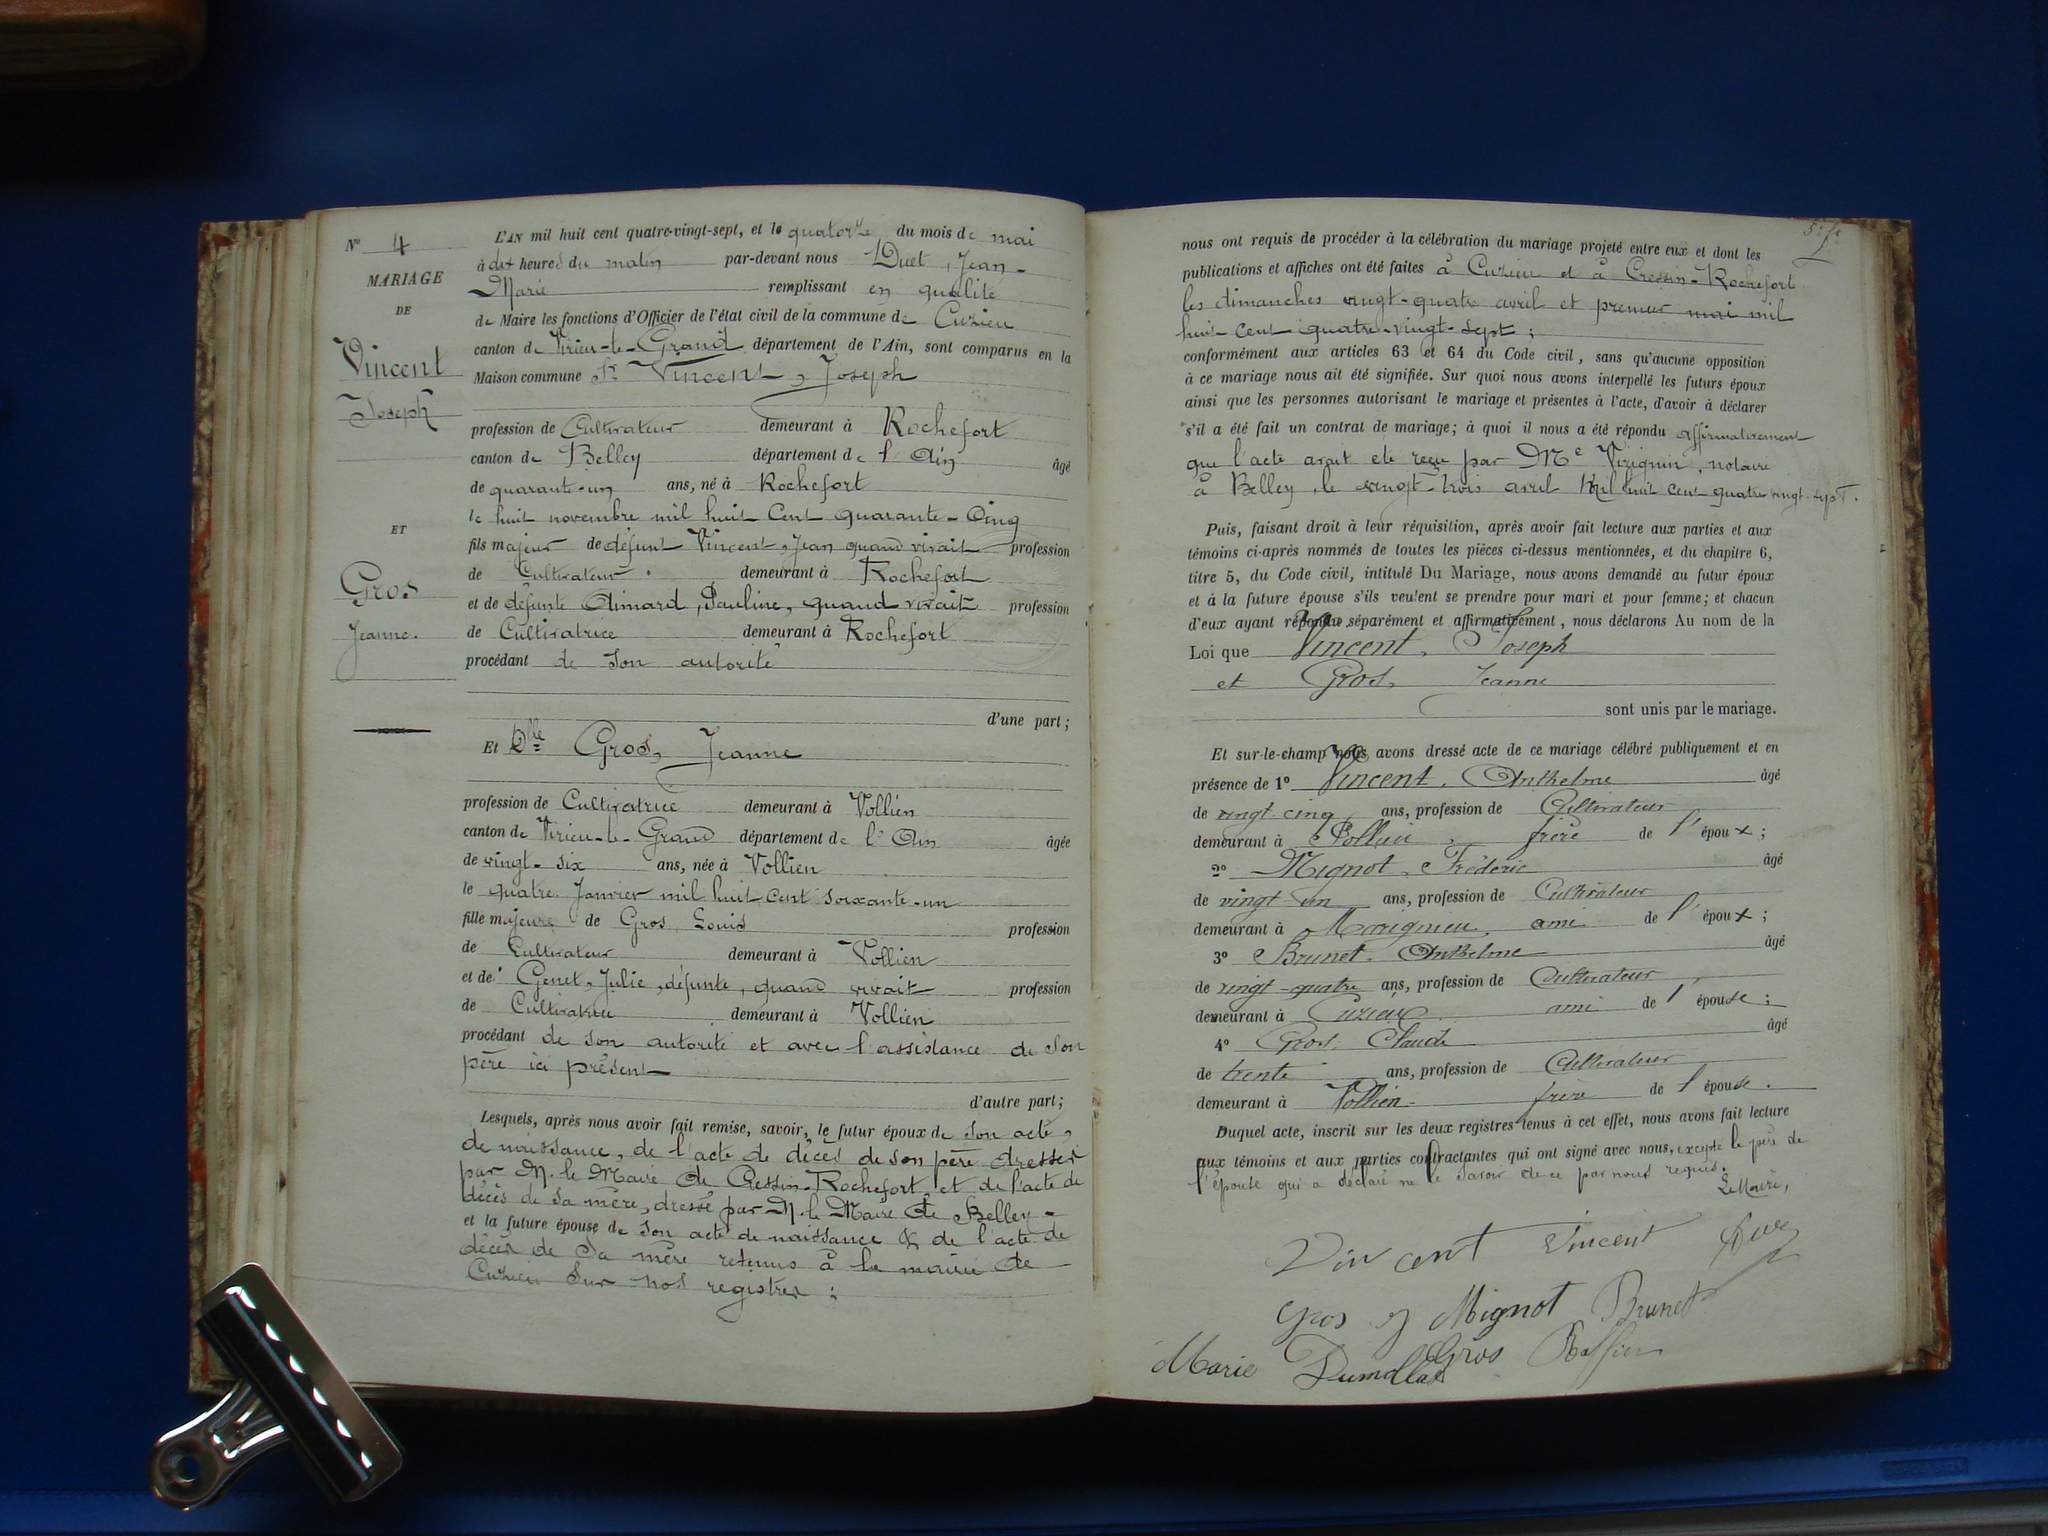 N° 4
MARIAGE
DE
Vincent
Joseph
ET
Gros
Jeanne.
L'AN mil huit cent quatre-vingt-sept, et le quatorze du mois de mai
à dix heures du matin par-devant nous Duet, Jean-
Marie remplissant en qualité
de Maire les fonctions d'Officier de l'état civil de la commune de Cuzieu
canton de Virieu-le-Grand département de l'Ain, sont comparus en la
Maison commune Sr Vincent, Joseph
profession de Cultivateur demeurant à Rochefort
canton de Belley département de l'Ain âgé
de quarante-un ans, né à Rochefort
le huit novembre mil huit cent quarante-cinq
fils majeur de défunt Vincent, Jean quand vivait profession
de Cultivateur demeurant à Rochefort
et de défunte Aimard, Pauline, quand vivait profession
de Cultivatrice demeurant à Rochefort
procédant de son autorité
d'une part;
Et Dlle Gros, Jeanne
profession de Cultivatrice demeurant à Vollien
canton de Virieu-le-Grand département de l'Ain âgée
de vingt-six ans, née à Vollien
le quatre Janvier mil huit cent soixante-un
fille majeure de Gros Louis profession
de Cultivateur demeurant à Vollien
et de Genet, Julie, défunte, quand vivait profession
de Cultivatrice demeurant à Vollien
procédant de son autorité et avec l'assistance de son
père ici présent
d'autre part;
Lesquels, après nous avoir fait remise, savoir, le futur époux de son acte
de naissance, de l'acte de décès de son père dressés
par M. le Maire de Cressin-Rochefort et de l'acte de
décès de sa mère, dressé par M. le Maire de Belley-
et la future épouse de son acte de naissance & de l'acte de
décès de sa mère retenus à la mairie de
Cuzieu sur nos registres;
nous ont requis de procéder à la célébration du mariage projeté entre eux et dont les
publications et affiches ont été faites à Cuzieu et à Cressin-Rochefort
les dimanches vingt-quatre avril et premier mai mil
huit cent quatre-vingt-sept;
conformément aux articles 63 et 64 du Code civil, sans qu'aucune opposition
à ce mariage nous ait été signifiée. Sur quoi nous avons interpellé les futurs époux
ainsi que les personnes autorisant le mariage et présentes à l'acte, d'avoir à déclarer
s'il a été fait un contrat de mariage; à quoi il nous a été répondu affirmativement
que l'acte avait été reçu par Me Virignin, notaire
à Belley, le vingt-trois avril mil huit cent quatre vingt-sept.
Puis, faisant droit à leur réquisition, après avoir fait lecture aux parties et aux
témoins ci-après nommés de toutes les pièces ci-dessus mentionnées, et du chapitre 6,
titre 5, du Code civil, intitulé Du Mariage, nous avons demandé au futur époux
et à la future épouse s'ils veulent se prendre pour mari et pour femme; et chacun
d'eux ayant répondu séparément et affirmativement, nous déclarons Au nom de la
Loi que Vincent, Joseph
et Gros, Jeanne
sont unis par le mariage.
Et sur-le-champ nous avons dressé acte de ce mariage célébré publiquement et en
présence de 1° Vincent, Anthelme âgé
de vingt cinq ans, profession de Cultivateur
demeurant à Pollieu, frère de l'époux;
2° Mignot, Frédéric âgé
de vingt-un ans, profession de Cultivateur
demeurant à Marignieu, ami de l'époux;
3° Brunet, Anthelme âgé
de vingt-quatre ans, profession de Cultivateur
demeurant à Cuzieu ami de l'épouse;
4° Gros, Claude âgé
de trente ans, profession de Cultivateur
demeurant à Vollien frère de l'épouse.
Duquel acte, inscrit sur les deux registres tenus à cet effet, nous avons fait lecture
aux témoins et aux parties contractantes qui ont signé avec nous, excepté le père de
l'épouse qui a déclaré ne le savoir de ce par nous requis.
Le Maire,
Vincent Vincent Duet
Gros J Mignot Brunet
Marie Dumollard Gros